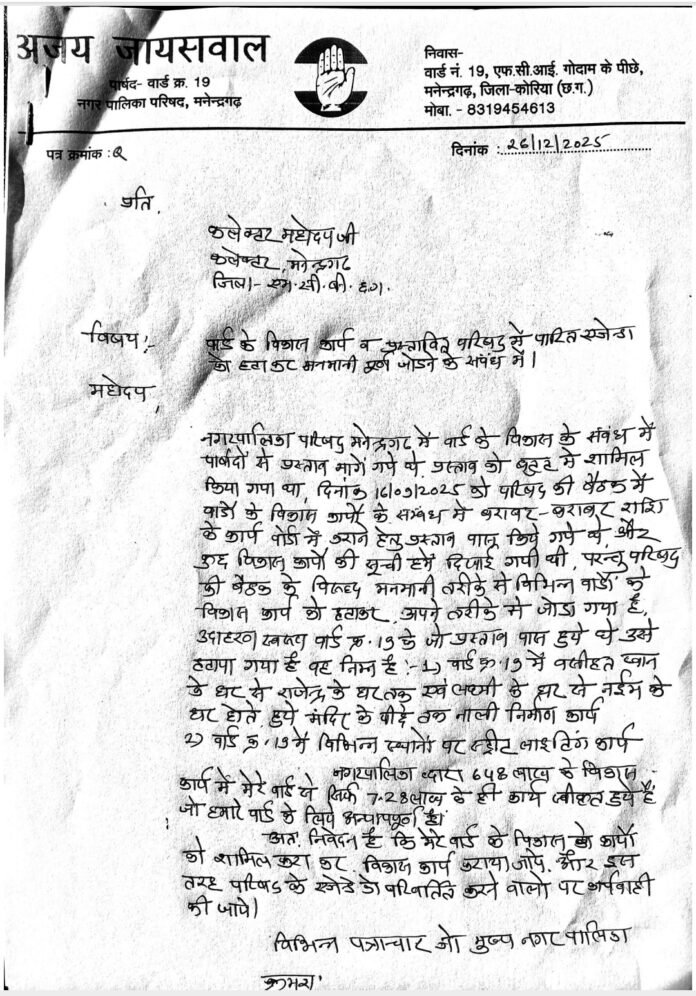 अजय जायसवाल
पार्षद- वार्ड क्र. 19
नगर पालिका परिषद, मनेन्द्रगढ़
निवास-
वार्ड नं. 19, एफ.सी.आई. गोदाम के पीछे,
मनेन्द्रगढ़, जिला-कोरिया (छ.ग.)
मोबा. - 8319454613
पत्र क्रमांक :
दिनांक : 26/12/2025
प्रति,
कलेक्टर महोदय जी
कलेक्टर, मनेन्द्रगढ़
जिला- एम.सी.बी. छ.ग.
विषय:- वार्ड के विकास कार्य व प्रस्तावित परिषद में पारित एजेन्डा
को हटा कर मनमानी पूर्ण जोडने के संबंध में।
महोदय,
नगरपालिका परिषद मनेन्द्रगढ में वार्ड के विकास के संबंध में
पार्षदों से प्रस्ताव मांगे गये थे, प्रस्ताव को वृहत में शामिल
किया गया था, दिनांक 16/09/2025 को परिषद की बैठक में
वार्डों के विकास कार्यों के संबंध में बराबर-बराबर राशि
के कार्य वार्डो में कराने हेतु प्रस्ताव पास किये गये थे, और
कुछ विकास कार्यों की सूची हमें दिखाई गयी थी, परन्तु परिषद
की बैठक के विरूध्द मनमानी तरीके से विभिन्न वार्डों के
विकास कार्य को हटाकर, अपने तरीके से जोडा गया है,
उदाहरण स्वरूप वार्ड क्र.19 के जो प्रस्ताव पास हुये थे उसे
हटाया गया है वह निम्न है :- 1) वार्ड क्र.19 में वसीहत खान
के घर से राजेन्द्र के घर तक एवं लक्ष्मी के घर से नईम के
घर होते हुये मंदिर के पीछे तक नाली निर्माण कार्य
2) वार्ड क्र.19 में विभिन्न स्थानों पर स्ट्रीट लाइटिंग कार्य
नगरपालिका द्वारा 648 लाख के विकास
कार्य में मेरे वार्ड से सिर्फ 7.28 लाख के ही कार्य स्वीकृत हुये हैं,
जो हमारे वार्ड के लिये अन्यायपूर्ण है।
अतः निवेदन है कि मेरे वार्ड के विकास के कार्यो
को शामिल करा कर, विकास कार्य कराया जाये, और इस
तरह परिषद के एजेंडे को परिवर्तित करने वालो पर कार्यवाही
की जाये।
विभिन्न पत्राचार जो मुख्य नगर पालिका
क्रमशः